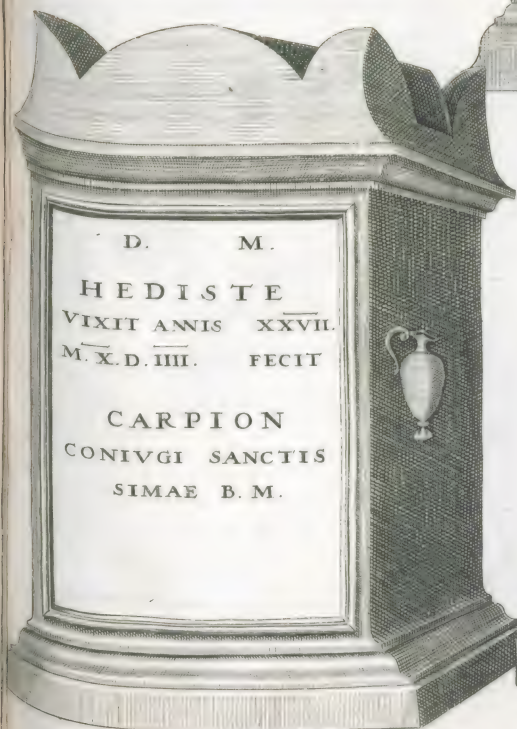 D. M.
HEDISTE
VIXIT ANNIS X̅X̅V̅I̅I̅.
M. X̅. D. I̅I̅I̅I̅. FECIT
CARPION
CONIVGI SANCTIS
SIMAE B. M.